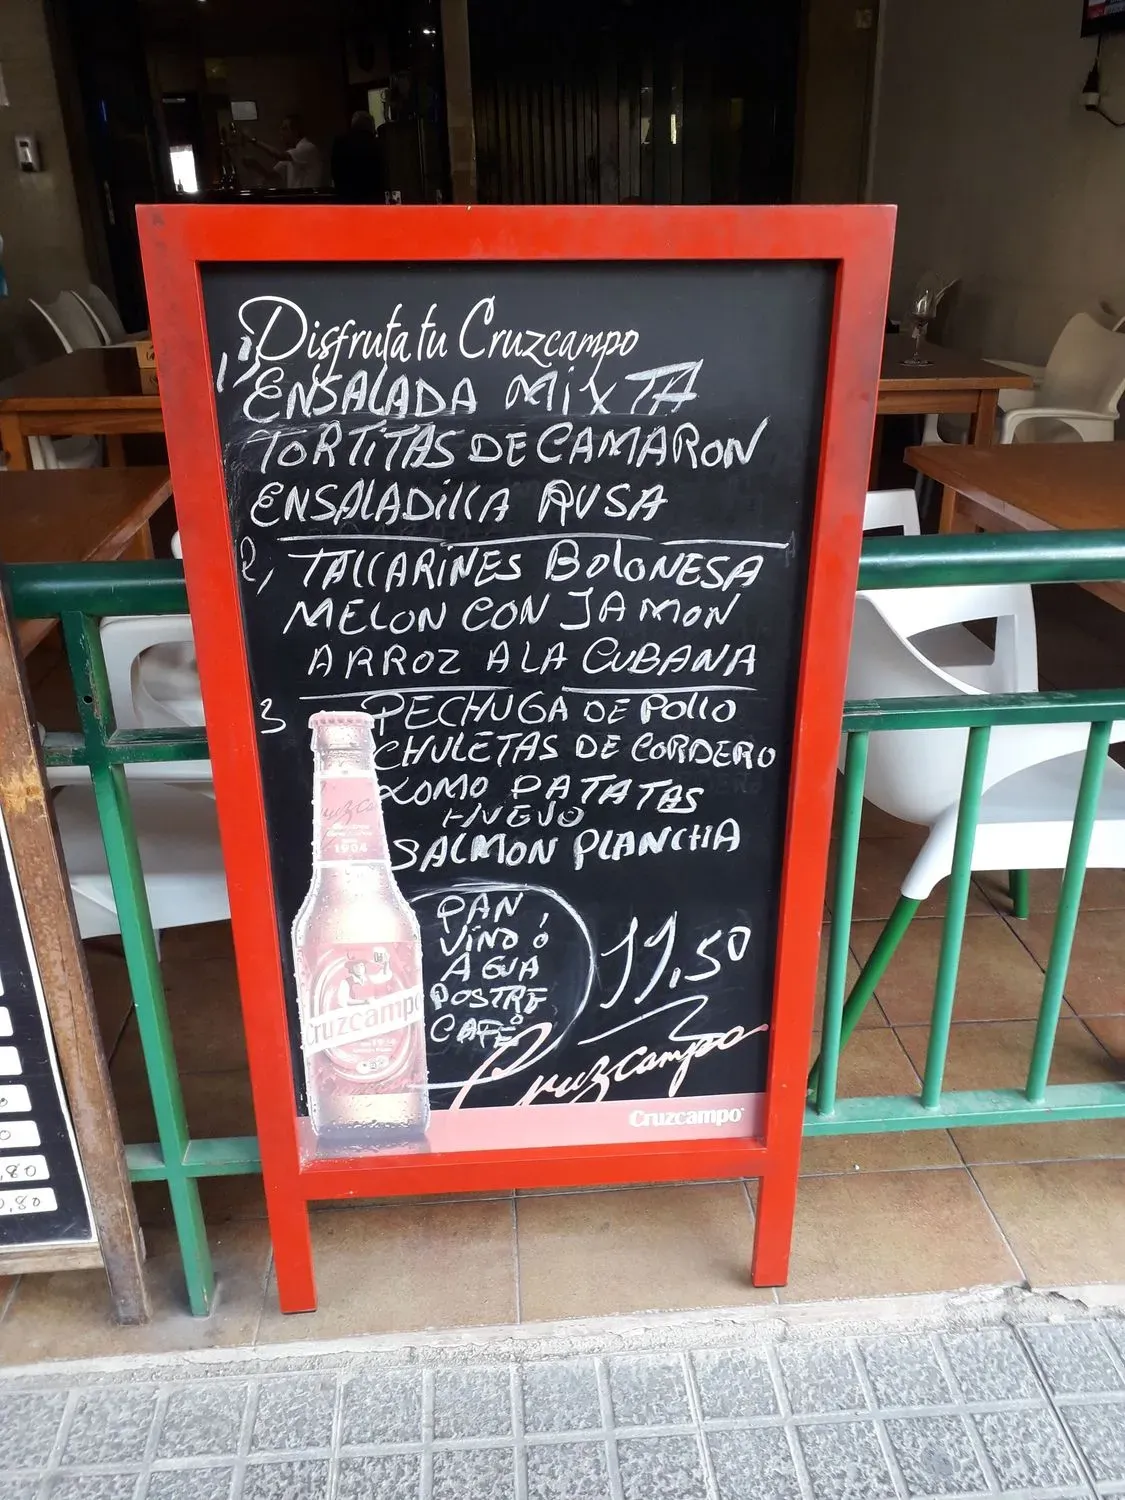 Disfruta tu Cruzcampo
1, ENSALADA MIXTA
TORTITAS DE CAMARON
ENSALADILLA RUSA
2, TALLARINES BOLONESA
MELON CON JAMON
ARROZ A LA CUBANA
3 PECHUGA DE POLLO
CHULETAS DE CORDERO
LOMO PATATAS
HUEVO
SALMON PLANCHA
PAN,
VINO Ó
AGUA
POSTRE
Ó
CAFÉ
11,50
Cruzcampo
Cruzcampo
Cruzcampo
1904
,80
0,80